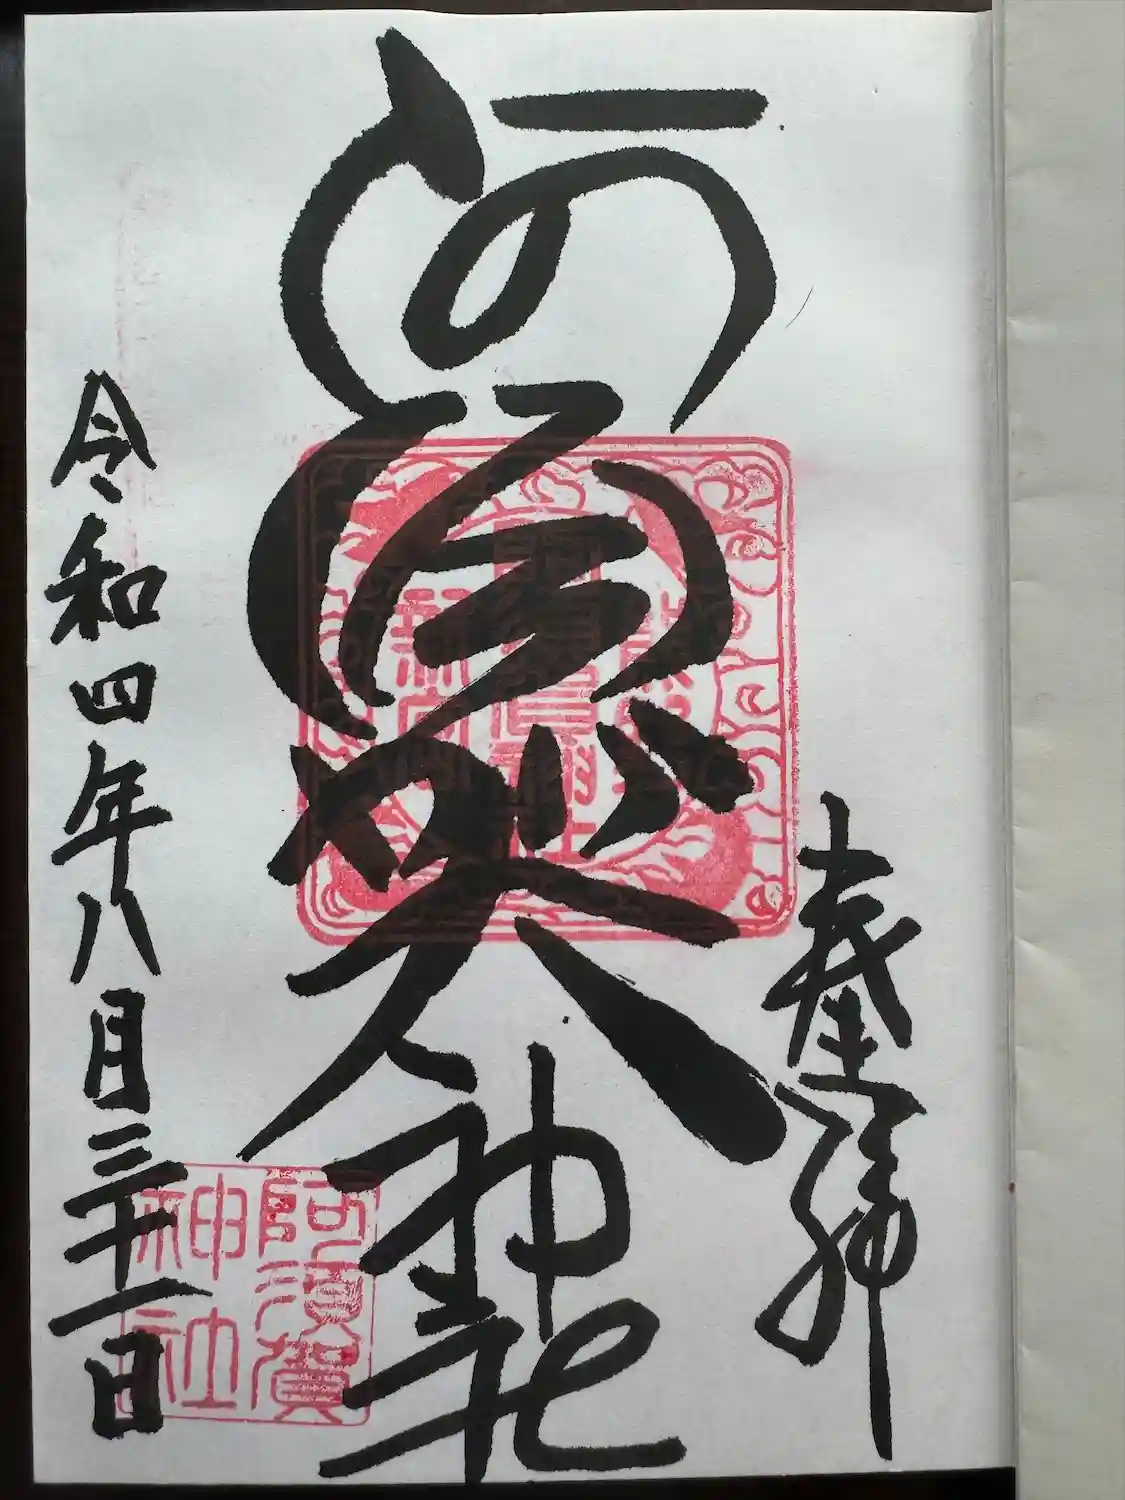 奉拝
阿須賀神社
阿須賀
神社
令和四年八月三十一日